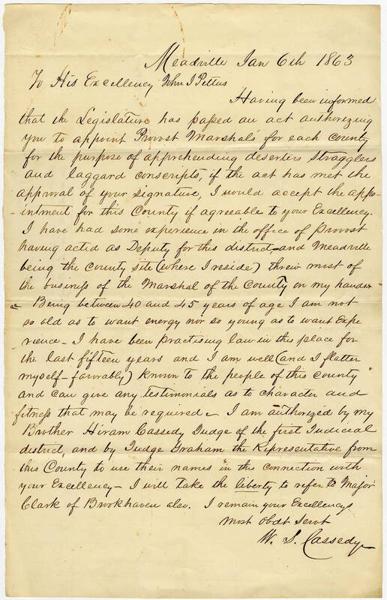 Meadville Jan 6th 1863
To His Excellency John J Pettus
Having been informed
that the Legislature has passed an act authorizing
you to appoint Provost Marshals for each County
for the purpose of apprehending deserters stragglers
and laggard conscripts, if the act has met the
approval of your signature, I would accept the appo-
intment for this County if agreeable to your Excellency.
I have had some experience in the office of Provost
having acted as Deputy for this district and Meadville
being the County site (where I reside) threw most of
the business of the Marshal of the County on my hands
Being between 40 and 45 years of age I am not
so old as to want energy nor so young as to want Expe
rience - I have been practising law in this place for
the last fifteen years and I am well (and I flatter
myself - favorably) known to the people of this county
and can give any testimonials as to character and
fitness that may be required - I am authorized by my
Brother Hiram Cassedy Judge of the first Judicial
district, and by Judge Graham the Representative from
this County to use their names in this connection with
your Excellency - I will take the liberty to refer to Major
Clark of Brookhaven also. I remain your Excellencys
most obdt Servt
W. S. Cassedy